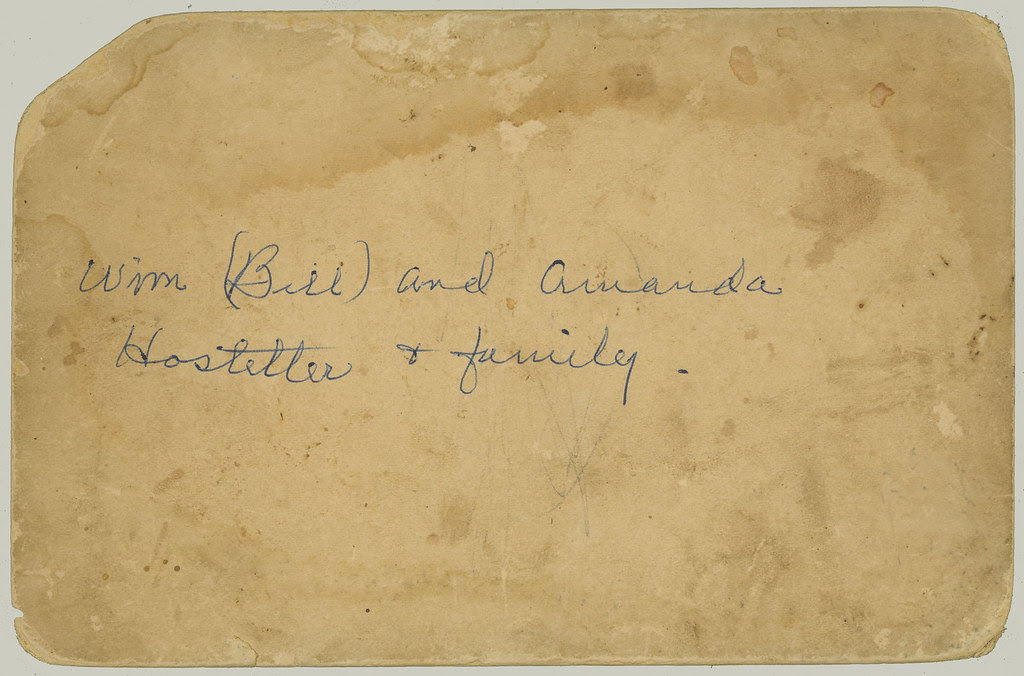 Wm (Bill) and Amanda
Hostetter & family.